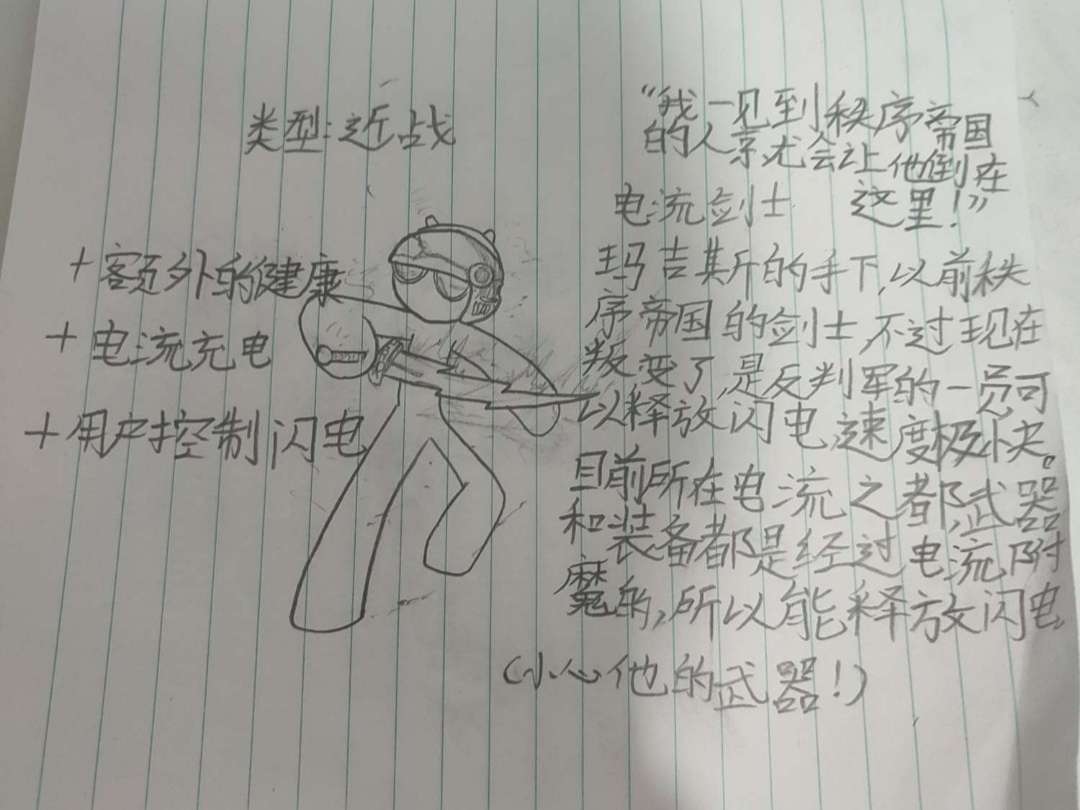 类型:近战
+额外的健康
+电流充电
+用户控制闪电
“我一见到秩序帝国
的人,就会让他倒在
这里!”
电流剑士
玛吉斯的手下,以前秩
序帝国的剑士,不过现在
叛变了,是反判军的一员可
以释放闪电,速度极快。
目前所在电流之都,武器
和装备都是经过电流附
魔的,所以能释放闪电
(小心他的武器!)